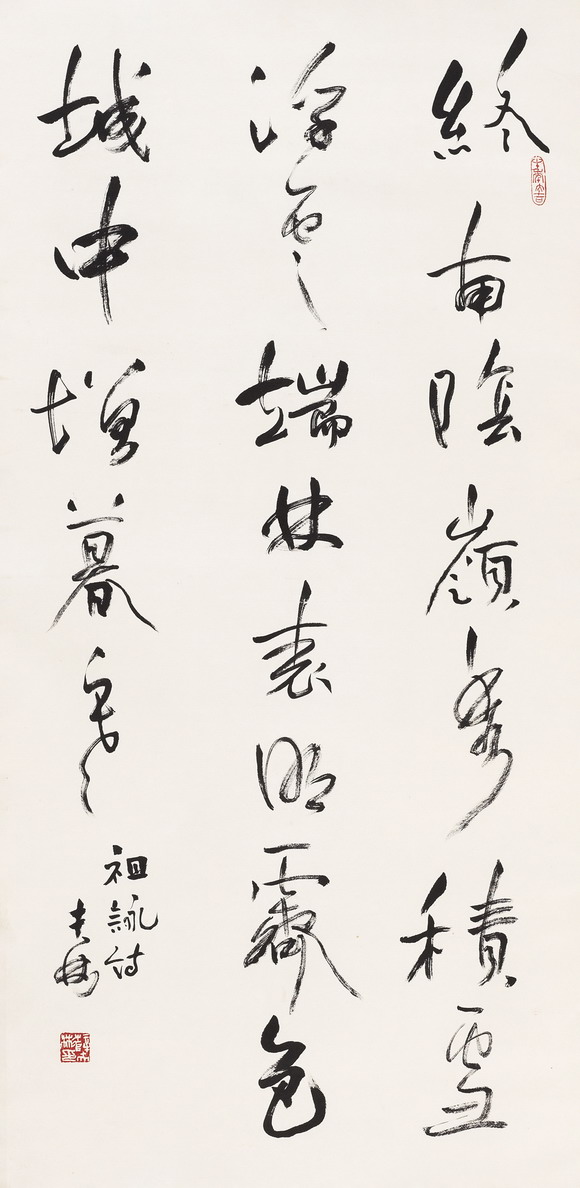 終南陰嶺秀積雪
浮雲端林表明霽色
城中增暮寒
祖詠詩